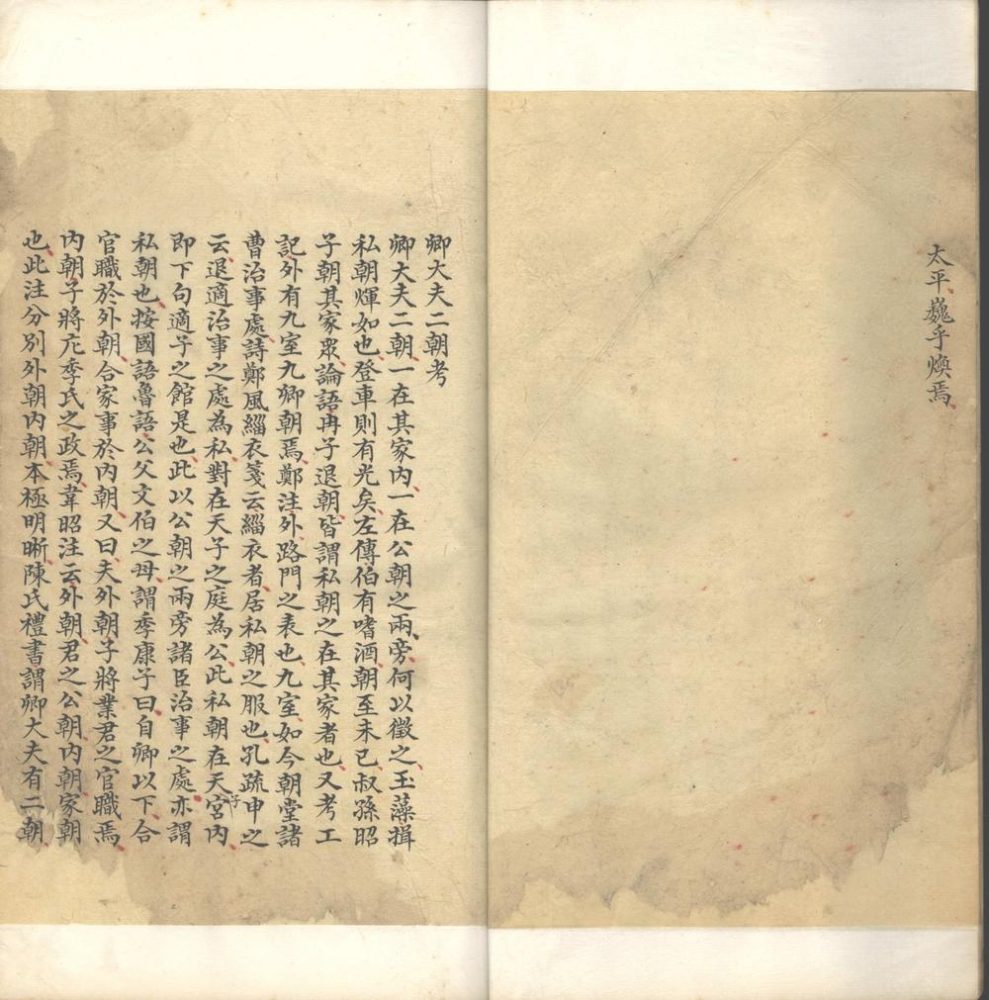 太平、巍乎煥焉、
卿大夫二朝考
卿大夫二朝、一在其家内、一在公朝之兩旁、何以徵之、玉藻揖
私朝煇如也、登車則有光矣、左傳伯有嗜酒、朝至未已、叔孫昭
子朝其家眾、論語冉子退朝、皆謂私朝之在其家者也、又考工
記、外有九室九卿朝焉、鄭注外、路門之表也、九室、如今朝堂諸
曹治事處、詩鄭風緇衣箋云、緇衣者、居私朝之服也、孔疏申之
云、退適治事之處為私、對在天子之庭為公、此私朝在天子宮内、
即下句適子之館是也、此以公朝之兩旁諸臣治事之處、亦謂
私朝也、按國語魯語、公父文伯之母、謂季康子曰、自卿以下、合
官職於外朝、合家事於内朝、又曰、夫外朝子將業君之官職焉、
内朝子將庀季氏之政焉、韋昭注云、外朝、君之公朝、内朝、家朝
也、此注分別外朝内朝、本極明晰、陳氏禮書謂卿大夫有二朝、